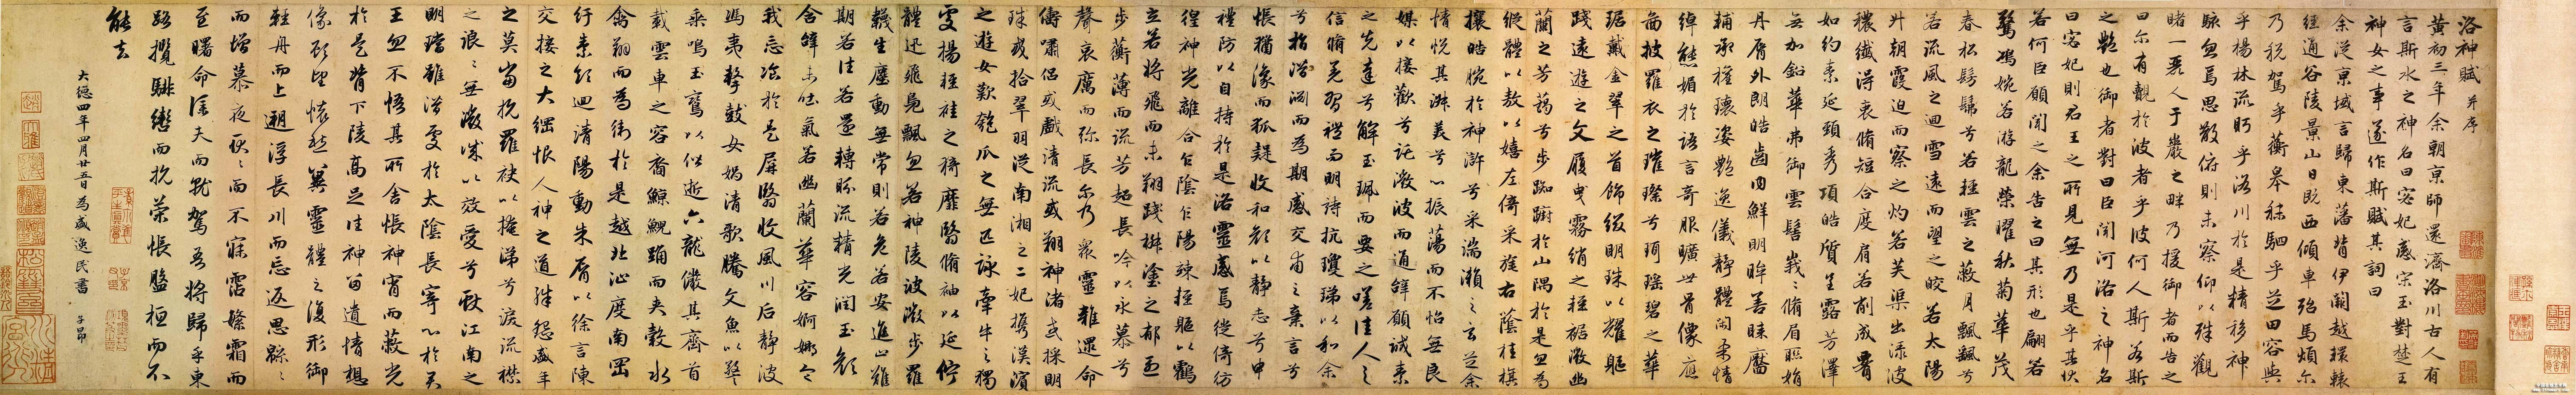 洛神賦 并序
黃初三年余朝京師還濟洛川古人有
言斯水之神名曰宓妃感宋玉對楚王
神女之事遂作斯賦其詞曰
余從京域言歸東藩背伊闕越轘轅
經通谷陵景山日既西傾車殆馬煩尔
乃稅駕乎蘅皋秣駟乎芝田容與
乎楊林流眄乎洛川於是精移神
駭忽焉思散俯則未察仰以殊觀
睹一麗人于巖之畔乃援御者而告之
曰尔有覿於彼者乎彼何人斯若斯
之艷也御者對曰臣聞河洛之神名
曰宓妃則君王之所見無乃是乎其狀
若何臣願聞之余告之曰其形也翩若
驚鴻婉若游龍榮曜秋菊華茂
春松髣髴兮若輕雲之蔽月飄颻兮
若流風之迴雪遠而望之皎若太陽
升朝霞迫而察之灼若芙蕖出淥波
穠纖得衷脩短合度肩若削成
如約素延頸秀項皓質呈露芳澤
無加鉛華弗御雲髻峩〻脩眉聯娟
丹脣外朗皓齒內鮮明眸善睞靨
輔承權瓌姿艷逸儀靜體閑柔情
綽態媚於語言奇服曠世骨像應
啚披羅衣之璀璨兮珥瑤碧之華
琚戴金翠之首飾綴明珠以耀軀
踐遠遊之文履曳霧綃之輕裾微幽
蘭之芳藹兮步踟躕於山隅於是忽焉
縱體以敖以嬉左倚采旄右蔭桂旗
攘皓腕於神滸兮采湍瀨之玄芝余
情悅其淑美兮心振蕩而不怡無良
媒以接歡兮託微波而通辭願誠素
之先達兮解玉珮而要之嗟佳人之
信脩羌習禮而明詩抗瓊珶以和余
兮指潛淵而為期感交甫之棄言兮
悵猶豫而狐疑收和顏以靜志兮申
禮防以自持於是洛靈感焉徙倚彷
徨神光離合乍陰乍陽竦輕軀以鶴
立若將飛而未翔踐椒塗之郁烈
步蘅薄而流芳超長吟以永慕兮
聲哀厲而弥長尔乃衆靈雜遝命
儔嘯侶或戲清流或翔神渚或採明
珠或拾翠羽從南湘之二妃攜漢濱
之遊女歎匏瓜之無匹詠牽牛之獨
處揚輕袿之猗靡翳脩袖以延佇
體迅飛鳧飄忽若神陵波微步羅
韈生塵動無常則若危若安進止難
期若往若還轉眄流精光潤玉顏
含辭未吐氣若幽蘭華容婀娜令
我忘飡於是屏翳收風川后靜波
馮夷擊鼓女媧清歌騰文魚以警
乘鳴玉鸞以偕逝六龍儼其齊首
載雲車之容裔鯨鯢踊而夾轂水
禽翔而為衛於是越北沚度南岡
紆素領迴清陽動朱脣以徐言陳
交接之大綱恨人神之道殊怨盛年
之莫當抗羅袂以掩涕兮淚流襟
之浪〻無微誠以效愛兮獻江南之
明璫雖潛處於太陰長寄心於君
王忽不悟其所舍悵神宵而蔽光
於是背下陵高足往神留遺情想
像顧望懷愁冀靈體之復形御
輕舟而上遡浮長川而忘返思緜〻
而增慕夜耿〻而不寐霑繁霜而
至曙命僕夫而就駕吾將歸乎東
路攬騑轡而抗策悵盤桓而不
能去
大德四年四月廿五日為盛逸民書 子昂